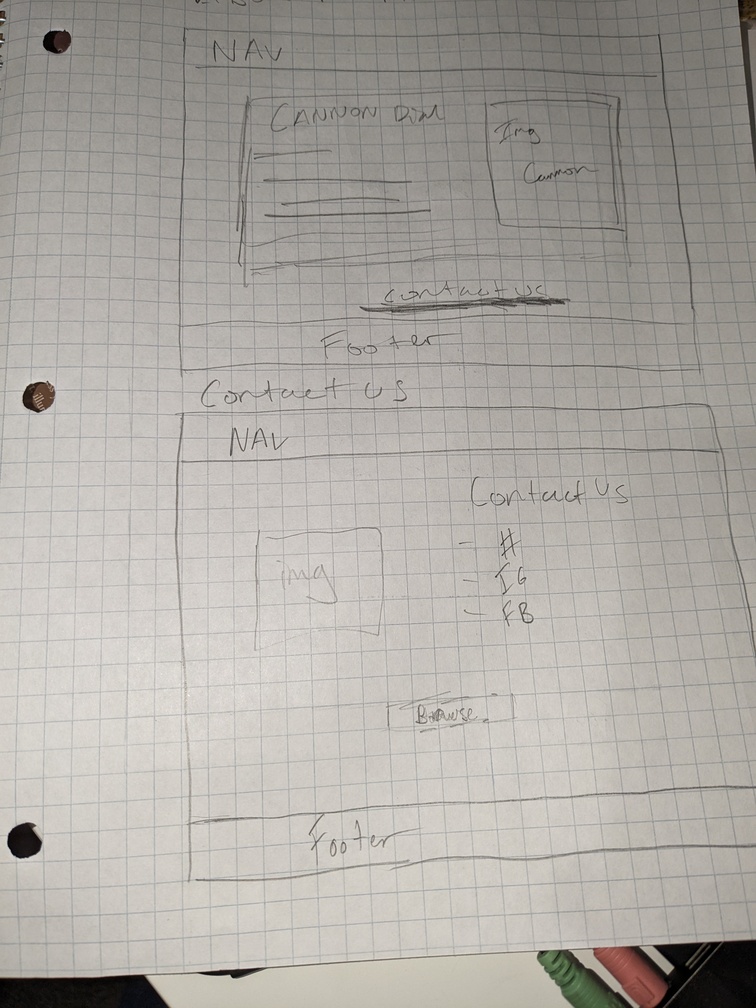 NAV
CANNON
Img
Cannon
Contact us
Footer
Contact us
NAV
Contact us
img
- #
- IG
- FB
Browse
Footer